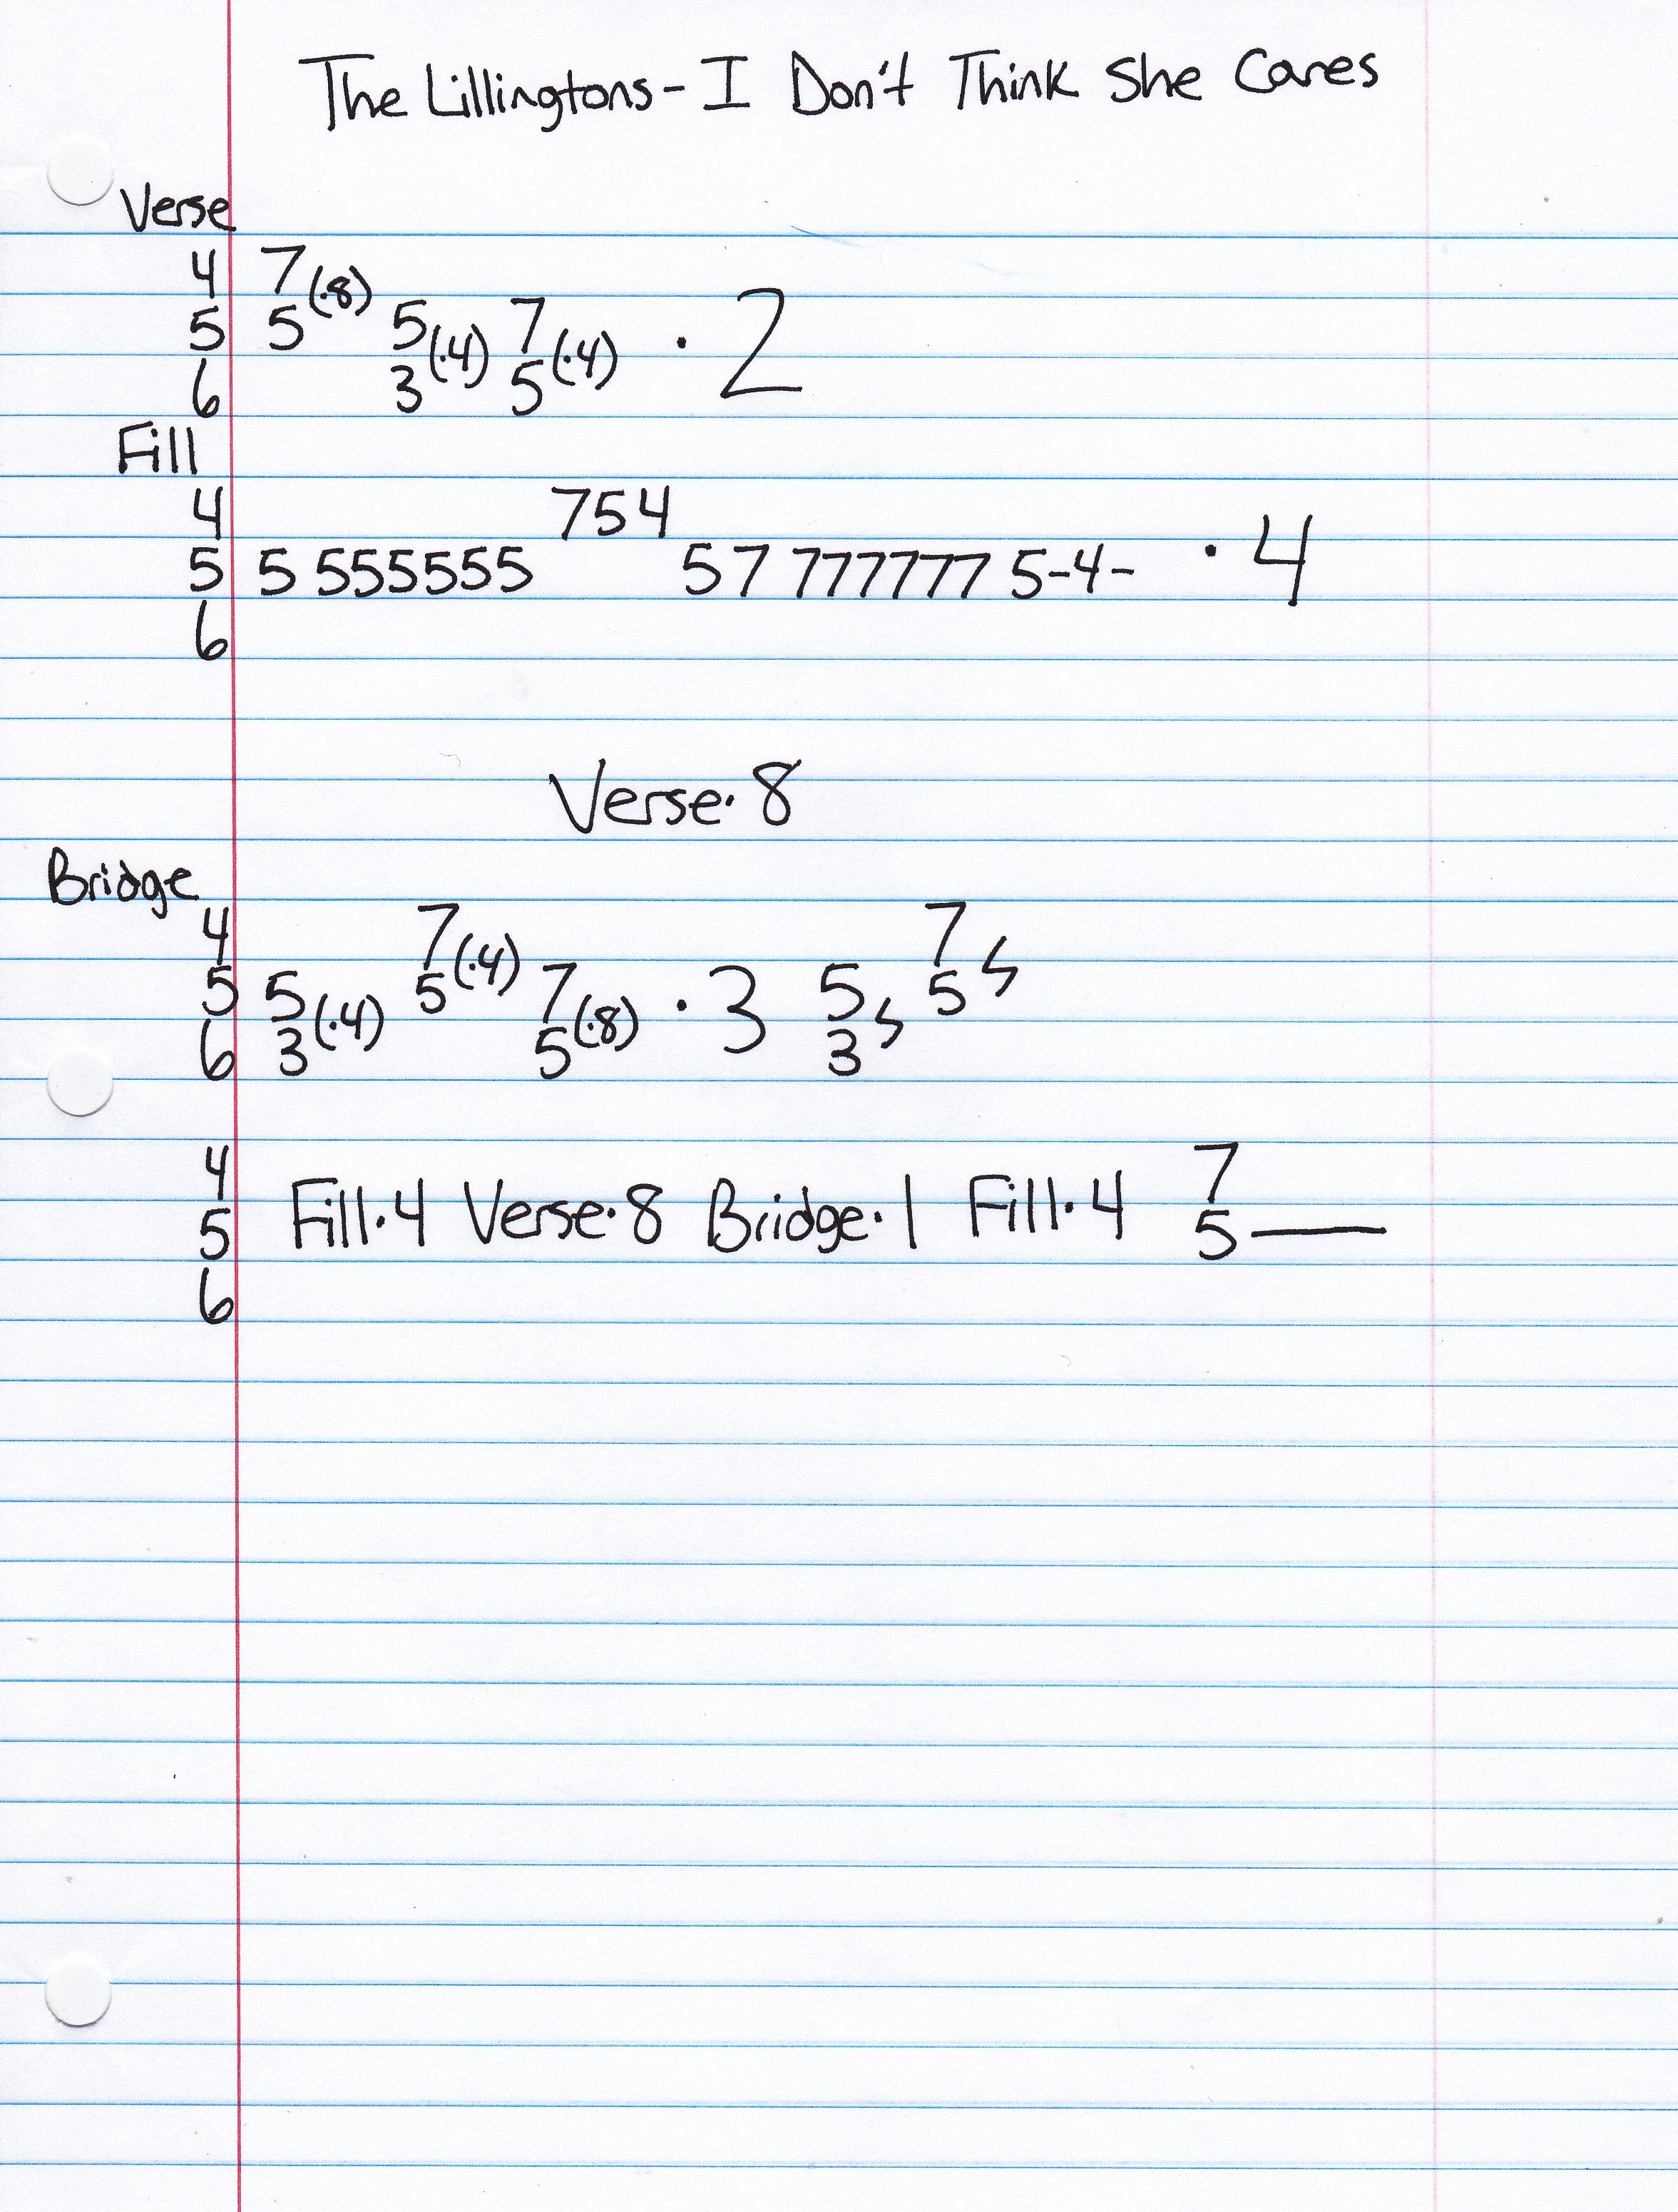 The Lillingtons - I Don't Think She Cares
Verse
4 7(·8)
5 5 5(·4) 7(·4) ·2
6 3 5
Fill
4 754
5 5 555555 57 777777 5-4- ·4
6
Verse·8
Bridge
4 7(·4) 7
5 5(·4) 5 7(·8) ·3 5 5
6 3 5 3
4 7
5 Fill·4 Verse·8 Bridge·1 Fill·4 5—
6